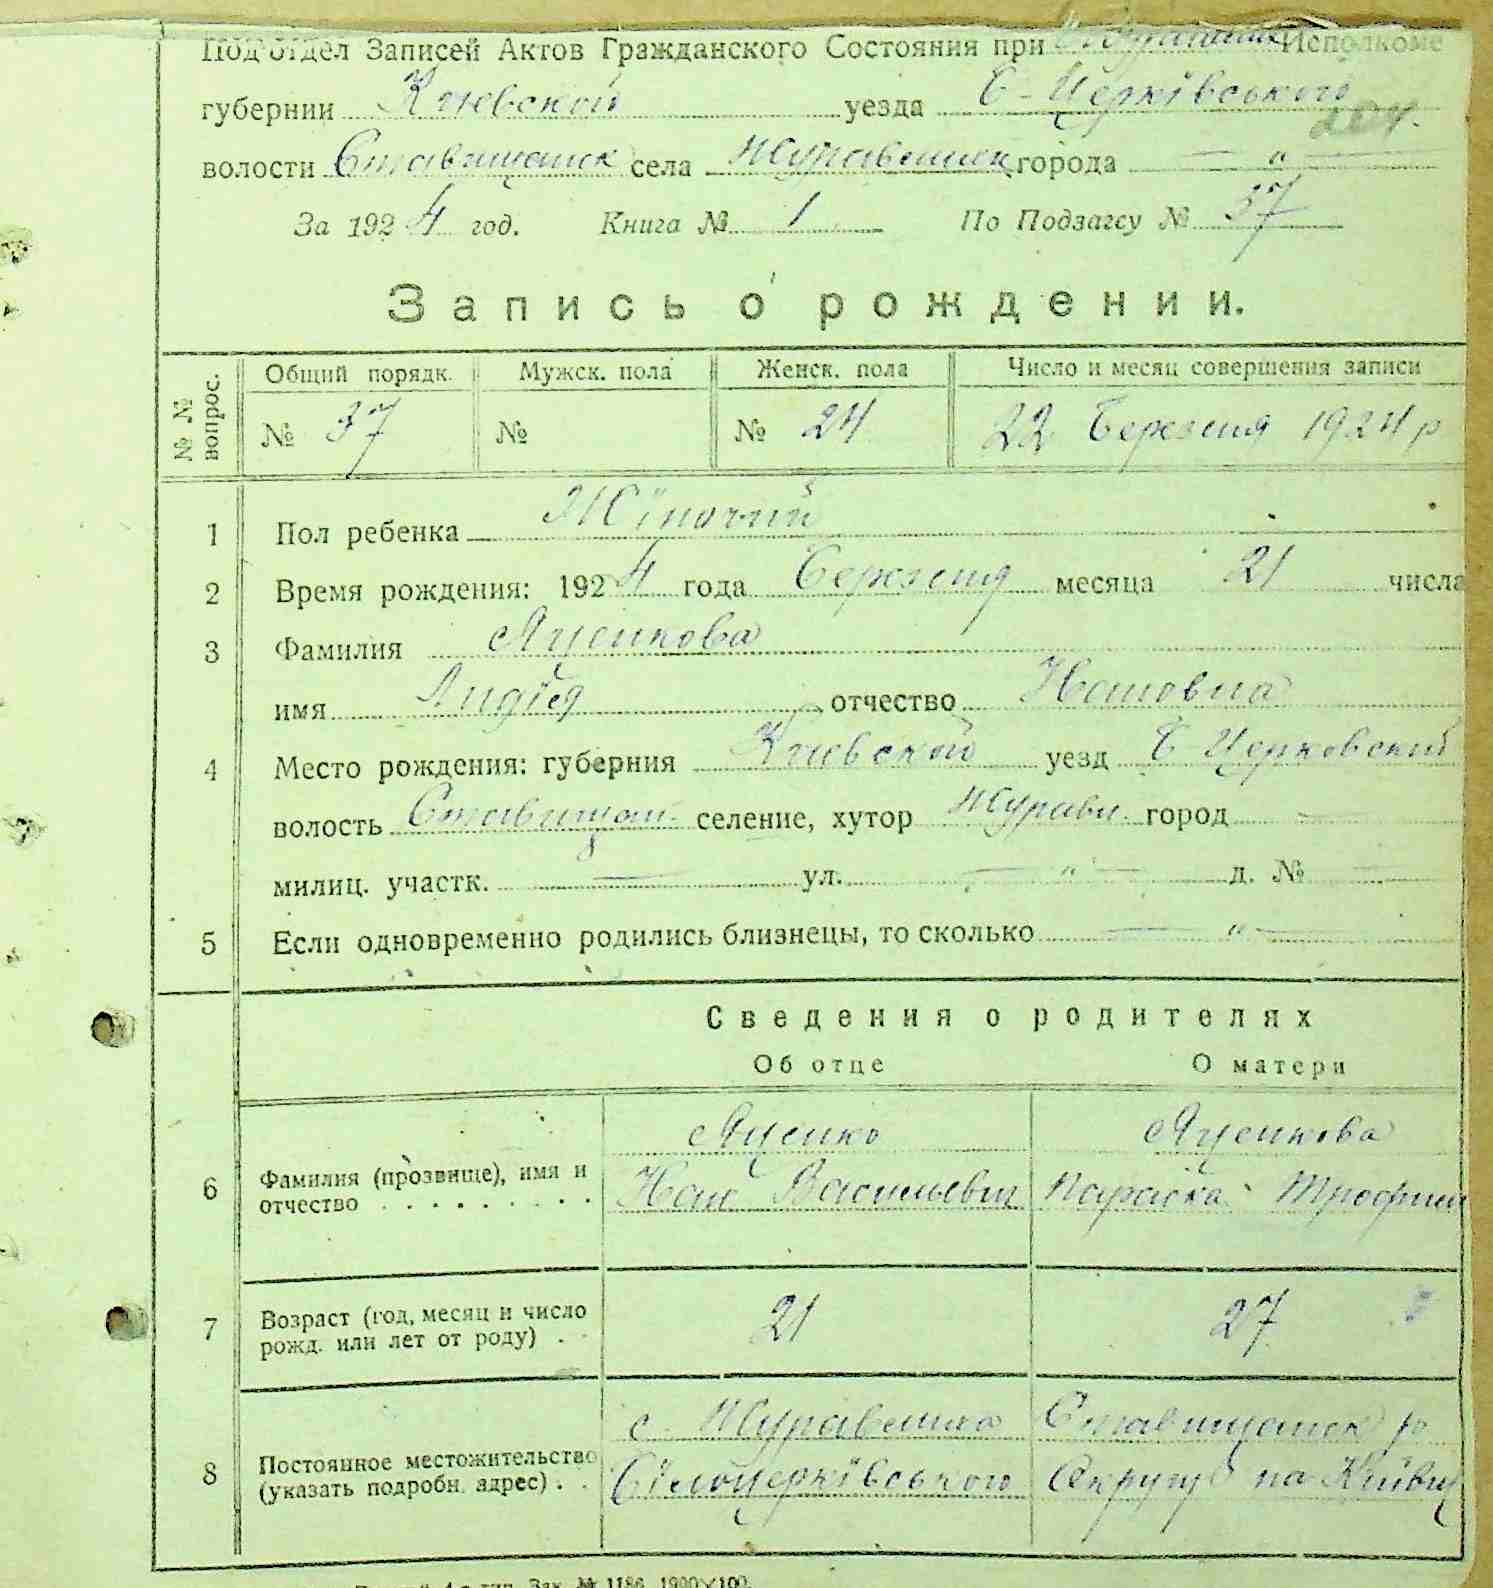 Под'отдел Записей Актов Гражданского Состояния при Исполкоме
губернии Киевской уезда Б-Церківського
204.
волости Ставищанск села Журавлиск города — " —
За 1924 год. Книга № 1 По Подзагсу № 37
Запись о рождении.
№ № вопрос. Общий порядк. Мужск. пола Женск. пола Число и месяц совершения записи
№ 37 № № 24 22 Березня 1924 р
1 Пол ребенка Жіночий
2 Время рождения: 1924 года Березня месяца 21 числа
3 Фамилия Яценкова
имя Лидія отчество Ивановна
4 Место рождения: губерния Киевской уезд Б Церковский
волость Ставищан. селение, хутор Журавл. город —
милиц. участк. — ул. — " — д. № —
5 Если одновременно родились близнецы, то сколько — " —
Сведения о родителях
Об отце О матери
Яценко Яценкова
6 Фамилия (прозвище), имя и отчество . . . . . . . . . Иван Васильевич Параска Трофим
7 Возраст (год, месяц и число рожд. или лет от роду) . . 21 27
с. Журавлиха Ставищанск р
8 Постоянное местожительство (указать подробн. адрес) . . Білоцерківського Округу на Київщ
Зак. № 1186 1000×100.